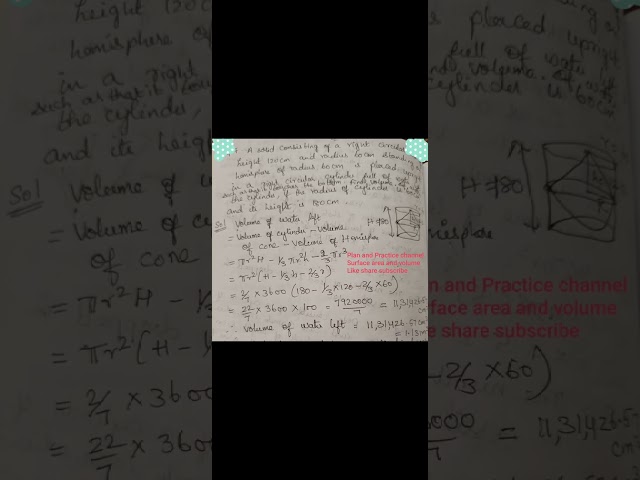 A solid consisting of a right circular
height 120cm and radius 60cm standing
hemisphere of radius 60cm is placed upright
in a right circular cylinder full of water
such as that it touches the bottom find volume of
the cylinder, if the radius of cylinder is 60cm
and its height is 180cm
Sol Volume of water left
= Volume of cylinder - volume
of cone - volume of Hemisphere
= πr²H - 1/3 πr²h - 2/3 πr³
= πr²(H - 1/3h - 2/3r)
= 2/7 × 3600 (180 - 1/3×120 - 2/3×60)
= 22/7 × 3600 × 100 = 7920000/7 = 11,31,426.57
cm³
∴ volume of water left = 11,31,426.57 cm
= 1.13 m
H=180
Plan and Practice channel
Surface area and volume
Like share subscribe